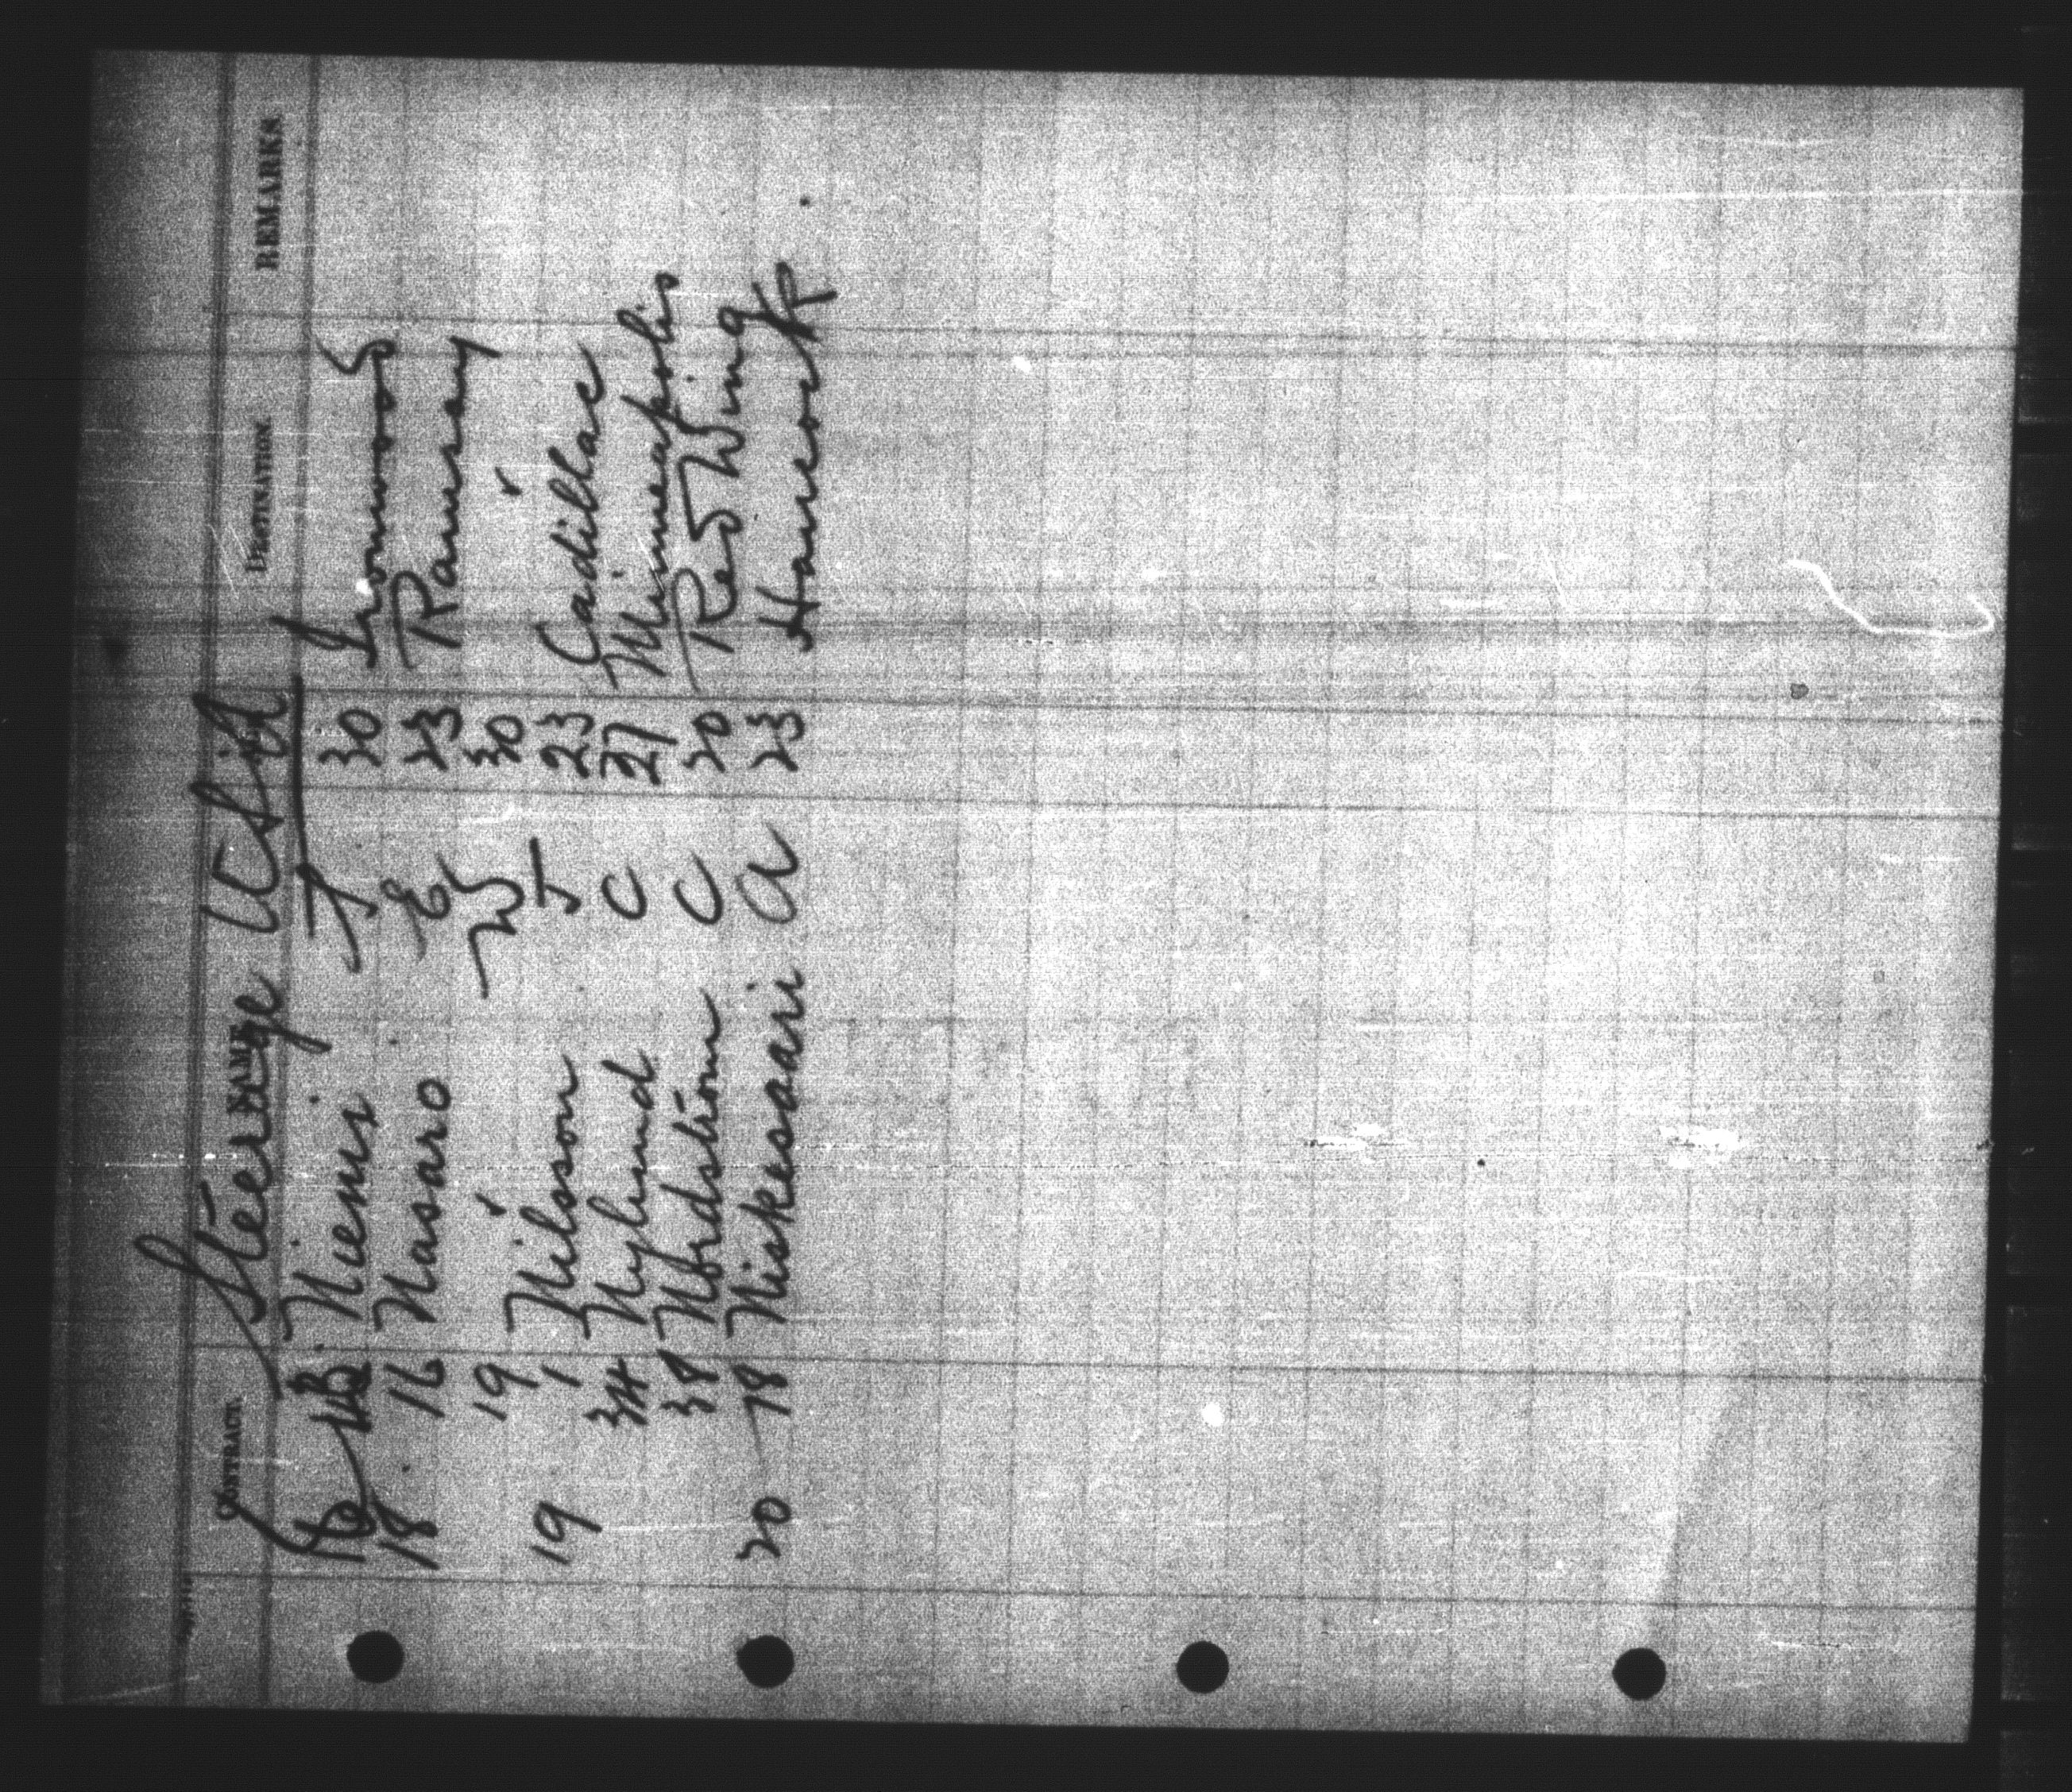 CONTRACT. NAME DESTINATION. REMARKS.
Steerage
18 Niemi J 30 Ironwood
18 16 Nasaro E 23 Ramsay
19 " W 30 "
19 1 Nilsson J 23 Cadillac
34 Nylund C 27 Minneapolis
38 Nordström C 20 Red Wing
20 78 Niskesaari A 23 Hancock